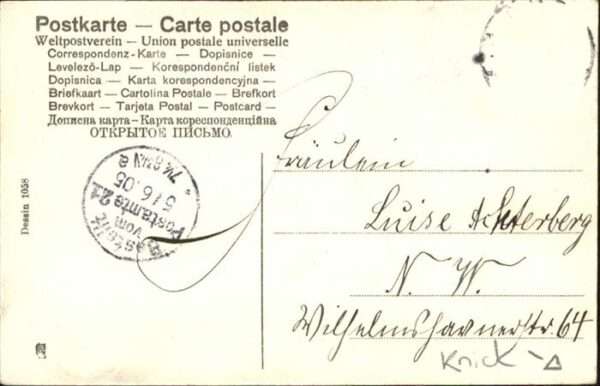 Postkarte — Carte postale
Weltpostverein — Union postale universelle
Correspondenz-Karte — Dopisnice —
Levelező-Lap — Korespondenční listek
Dopisnica — Karta korespondencyjna —
Briefkaart — Cartolina Postale — Brefkort
Brevkort — Tarjeta Postal — Postcard —
Дописна карта — Карта кореспонденційна
ОТКРЫТОЕ ПИСЬМО.
Dessin 1058
Bestellt
vom
Postamte 21
5/6.05
Fräulein
Luise Achterberg
N. W.
Wilhelmshavnerstr. 64
Knick